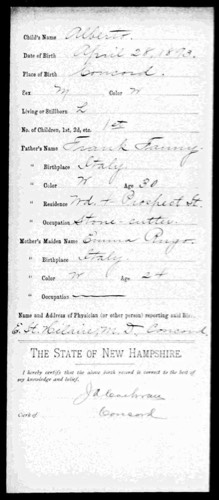 Child's Name Alberto.
Date of Birth April 28, 1893.
Place of Birth Concord.
Sex M Color W
Living or Stillborn L
No. of Children, 1st, 2d, etc. 1st
Father's Name Frank Tanny
" Birthplace Italy
" Color W Age 30
" Residence Wd. 4 Prospect St.
" Occupation Stone-cutter.
Mother's Maiden Name Emma
" Birthplace Italy.
" Color W Age 24
" Occupation
Name and Address of Physician (or other person) reporting said Birth
E. St. Helaire, M. D. Concord
THE STATE OF NEW HAMPSHIRE.
I hereby certify that the above birth record is correct to the best of
my knowledge and belief.
Clerk of Concord